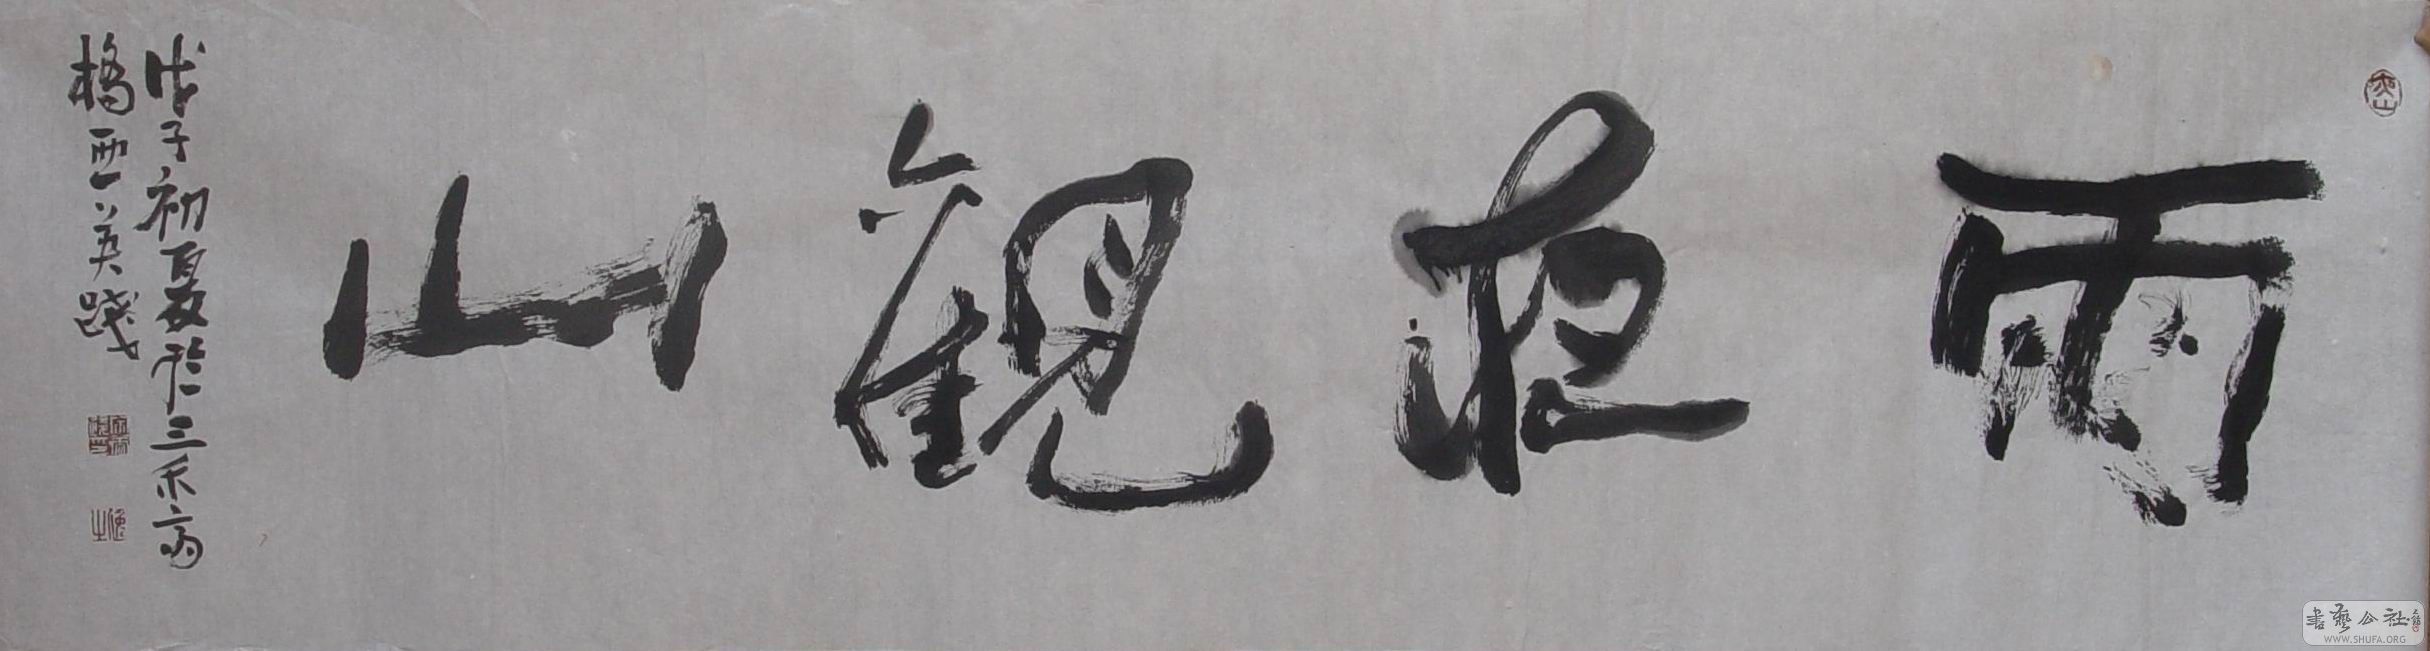 雨夜観山
戊子初夏於三禾斋
橋西英踐
書藝公社
WWW.SHUFA.ORG